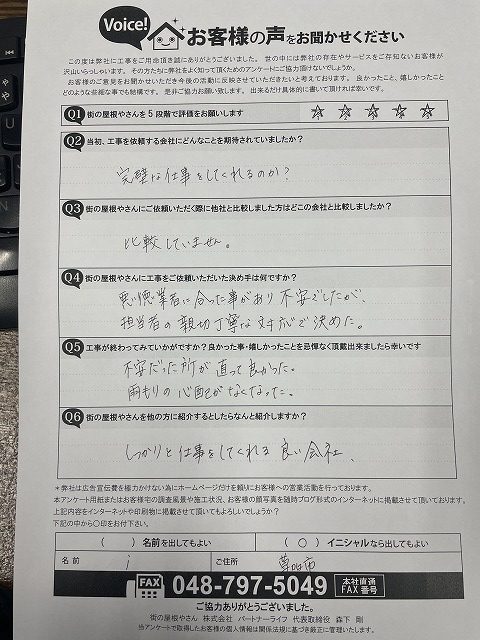 Voice!
お客様の声をお聞かせください
この度は弊社に工事をご用命頂き誠にありがとうございました。 世の中には弊社の存在やサービスをご存知ないお客様が
沢山いらっしゃいます。 その方たちに弊社をよく知って頂くためのアンケートにご協力頂けないでしょうか。
お客様のご意見をお聞かせいただき今後の活動に反映させていただきたいと考えております。 良かったこと、嬉しかったこと
どのような些細な事でも結構です。 是非ご協力お願い致します。 出来るだけ具体的に書いて頂ければ幸いです。
Q1 街の屋根やさんを5段階で評価をお願いします ☆ ☆ ☆ ☆ ☆
Q2 当初、工事を依頼する会社にどんなことを期待されていましたか?
完璧な仕事をしてくれるのか?
Q3 街の屋根やさんにご依頼いただく際に他社と比較しました方はどこの会社と比較しましたか?
比較していません。
Q4 街の屋根やさんに工事をご依頼いただいた決め手は何ですか?
悪徳業者に合った事があり不安でしたが、
担当者の親切丁寧な対応で決めた。
Q5 工事が終わってみていかがですか?良かった事・嬉しかったことを忌憚なく頂戴出来ましたら幸いです
不安だった所が直って良かった。
雨もりの心配がなくなった。
Q6 街の屋根やさんを他の方に紹介するとしたらなんと紹介しますか?
しっかりと仕事をしてくれる良い会社、
＊弊社は広告宣伝費を極力かけない為にホームページだけを頼りにお客様への営業活動を行っております。
本アンケート用紙またはお客様宅の調査風景や施工状況、お客様の顔写真を随時ブログ形式のインターネットに掲載させて頂いております。
上記内容をインターネットや印刷物に掲載させて頂いてもよろしいでしょうか?
下記の中から〇印をお付下さい。
( ) 名前を出してもよい ( ○ ) イニシャルなら出してもよい
名前 i ご住所 草加市
FAX 048-797-5049 本社直通 FAX番号
ご協力ありがとうございました。
街の屋根やさん 株式会社 パートナーライフ 代表取締役 森下 剛
当アンケートで取得したお客様の個人情報は関係法規に基づき厳正に管理いたします。